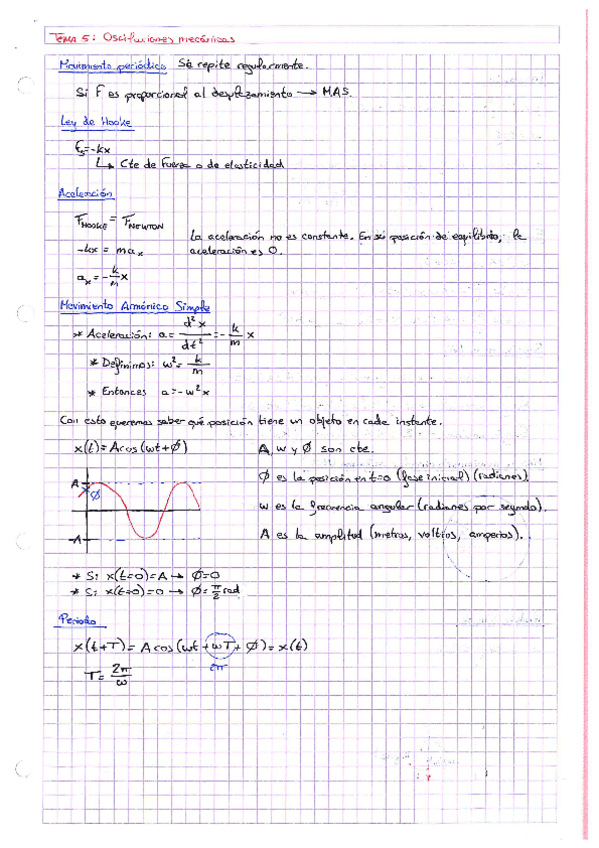 TEMA 5: Oscilaciones mecánicas
Movimiento periódico Se repite regularmente.
Si F es proporcional al desplazamiento → MAS.
Ley de Hooke
Fs=-kx
↳ Cte de Fuerza o de elasticidad
Aceleración
F_HOOKE = F_NEWTON
-kx = ma_x
a_x = -k/m x
La aceleración no es constante. En su posición de equilibrio, la
aceleración es 0.
Movimiento Armónico Simple
* Aceleración: a = d²x/dt² = -k/m x
* Definimos: w² = k/m
* Entonces a = -w²x
Con esto queremos saber qué posición tiene un objeto en cada instante.
x(t) = A cos(wt+Ø)
A, w y Ø son cte.
Ø es la posición en t=0 (fase inicial) (radianes).
w es la frecuencia angular (radianes por segundo).
A es la amplitud (metros, voltios, amperios).
A
Ø
-A
* Si x(t=0)=A → Ø=0
* Si x(t=0)=0 → Ø=π/2 rad
Periodo
x(t+T) = A cos(wt + wT + Ø) = x(t)
2π
T = 2π/w